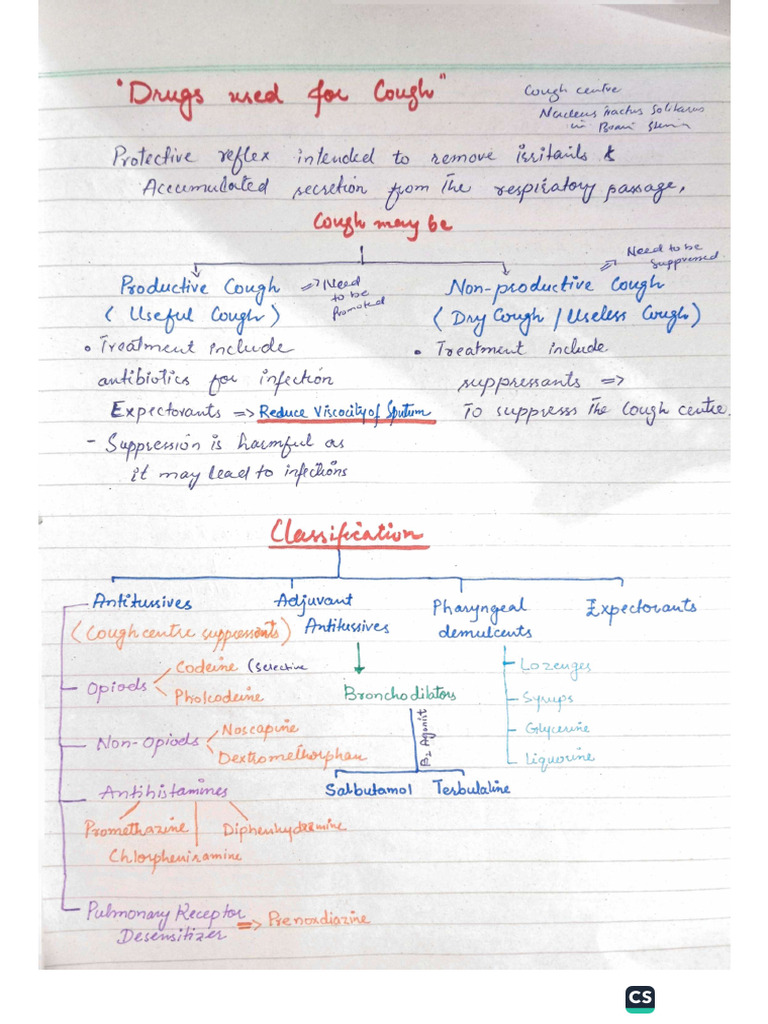 "Drugs used for Cough"
Cough centre
Nucleus tractus Solitarus
in Brain Stem
Protective reflex intended to remove irritants &
Accumulated secretion from the respiratory passage,
Cough may be
Productive Cough => Need to be Promoted
(Useful Cough)
• Treatment include
antibiotics for infection
Expectorants => Reduce Viscocity of Sputum
- Suppression is harmful as
it may lead to infections
Non-productive Cough => Need to be Suppressed
(Dry Cough / Useless Cough)
• Treatment include
suppressants =>
To suppresss the Cough centre.
Classification
Antitussives
(Cough centre suppressants)
Opiods
Codeine (Selective
Pholcodeine
Non-Opiods
Noscapine
Dextromethorphan
Antihistamines
Promethazine
Diphenhydramine
Chlorpheniramine
Pulmonary Receptor
Desensitizer => Prenoxdiazine
Adjuvant
Antitussives
Bronchodilators
β2 Agonist
Salbutamol Terbutaline
Pharyngeal
demulcents
Lozenges
Syrups
Glycerine
Liquorine
Expectorants
CS